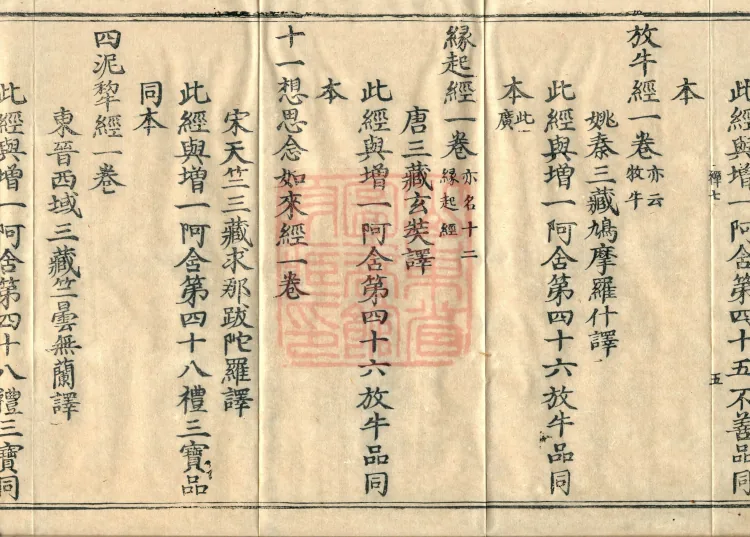 此經與增一阿含第四十五不善品同
本
禪七
五
放牛經一卷亦云牧牛
姚秦三藏鳩摩羅什譯
此經與增一阿含第四十六放牛品同
本此廣
緣起經一卷亦名十二緣起經
唐三藏玄奘譯
此經與增一阿含第四十六放牛品同
本
十一想思念如來經一卷
宋天竺三藏求那跋陀羅譯
此經與增一阿含第四十八禮三寶品
同本
四泥犂經一卷
東晉西域三藏竺曇無蘭譯
此經與增一阿含第四十八禮三寶同